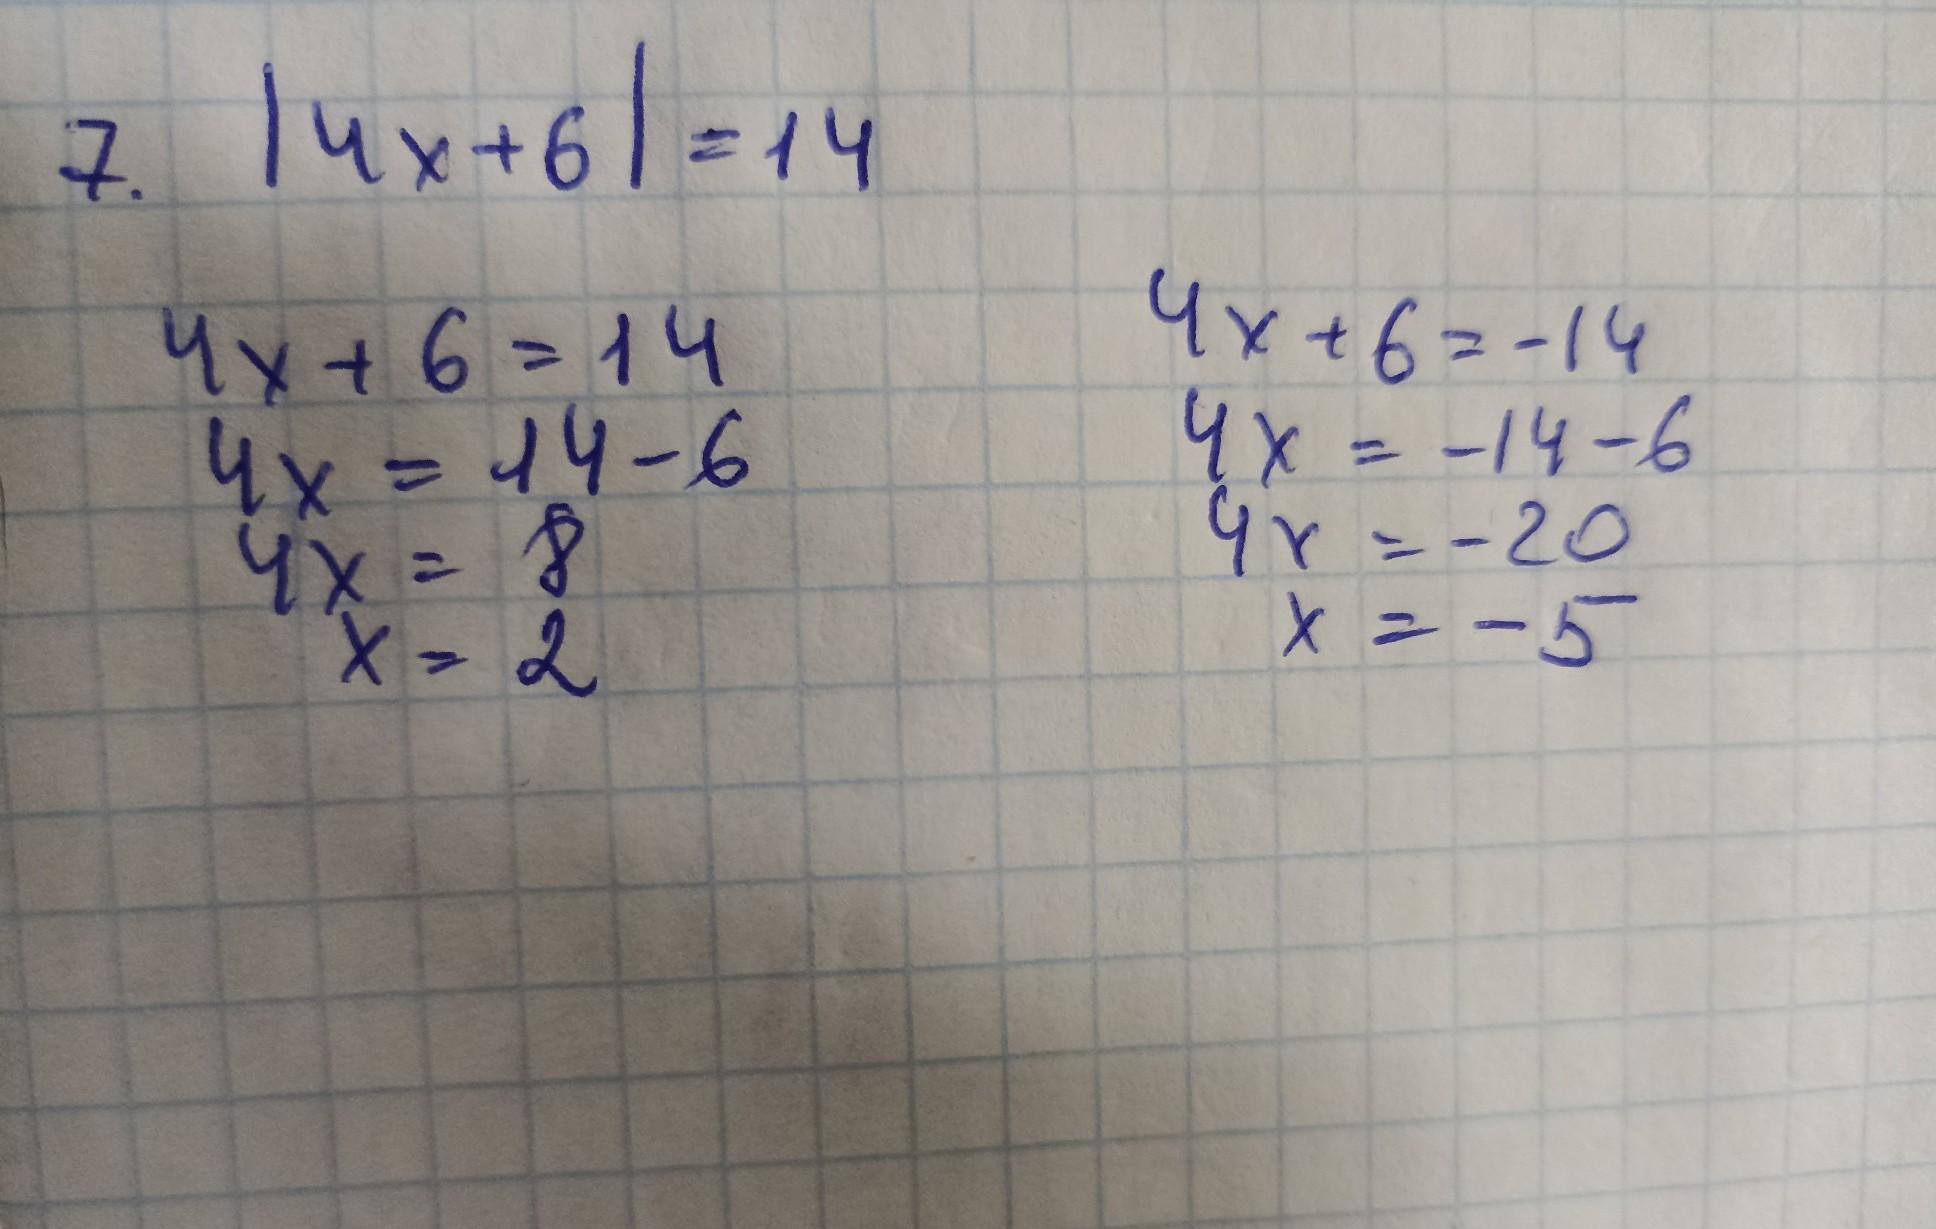 7. |4x+6|=14
4x+6=14
4x=14-6
4x=8
x=2
4x+6=-14
4x=-14-6
4x=-20
x=-5